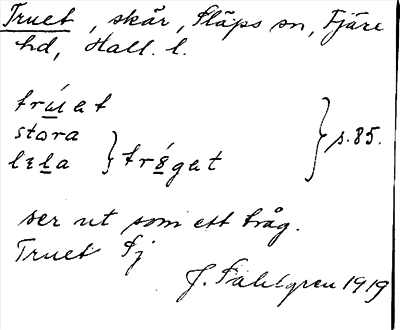 Truet, skär, Släps sn, Fjäre
hd, Hall. l.
trúet
stora
lɛla } tróget } s. 85.
ser ut som ett tråg.
Truet Fj
J. Sahlgren 1919